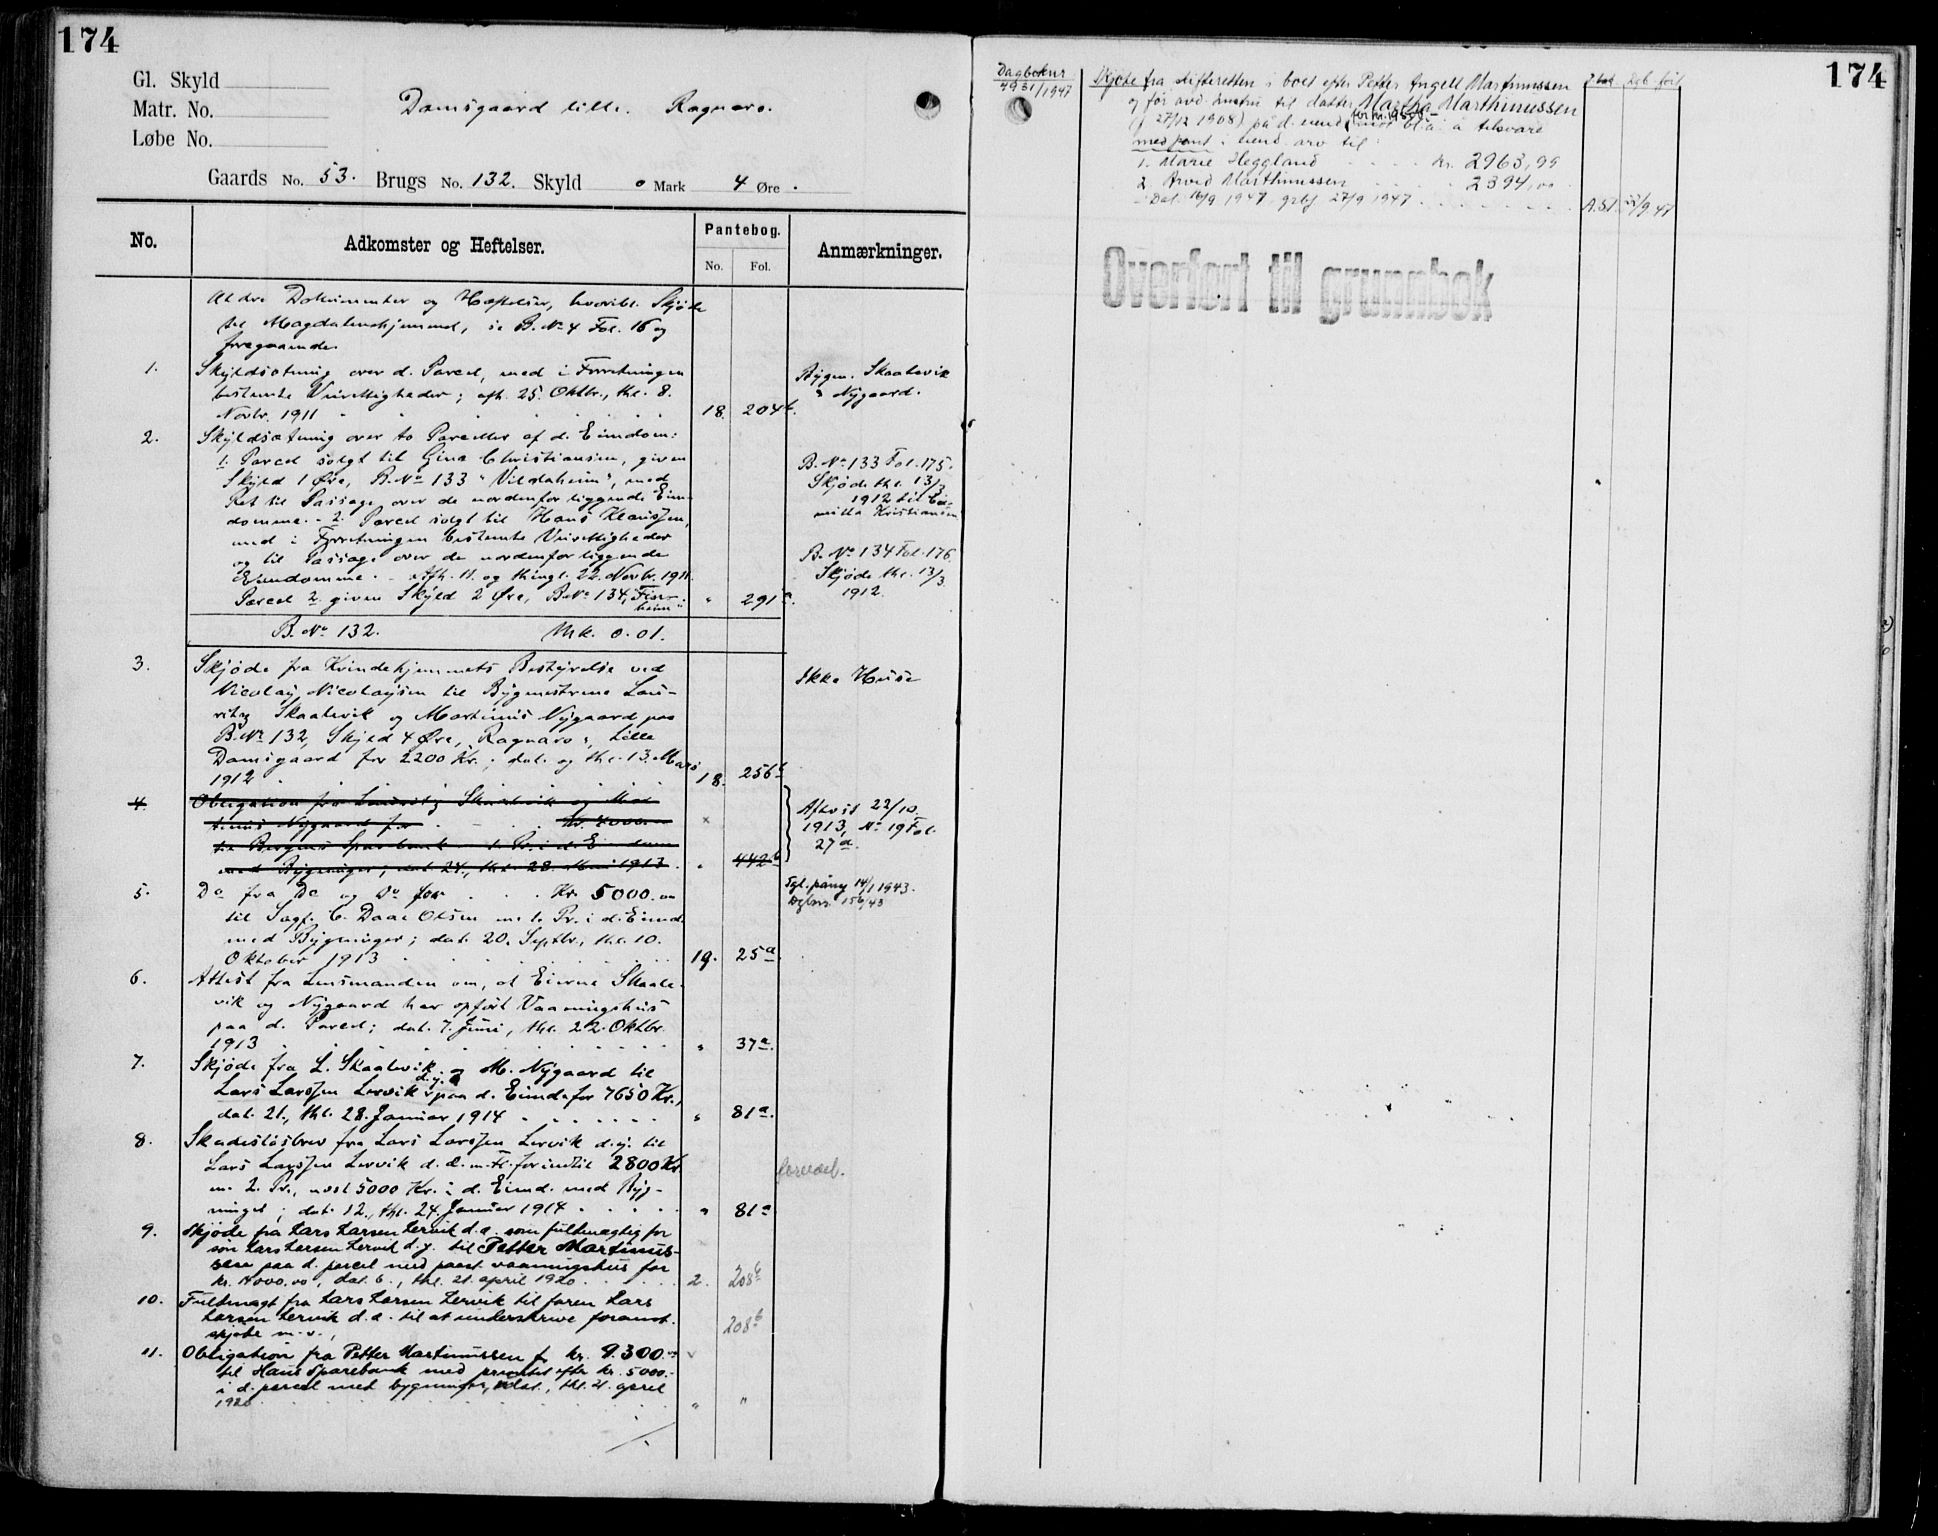 174
Gl. Skyld
Matr. No.
Løbe No.
Damsgaard lille. Ragnaro.
Gaards No. 53. Brugs No. 132. Skyld 0 Mark 4 Øre.
No.
Adkomster og Heftelser.
Pantebog.
No. Fol.
Anmærkninger.
Ældre Dokumenter og Hæftelser, hvoribl. Skjøde
til Magdalenehjemmet, se B. No 4 Fol. 16 og
foregaaende
1. Skyldsætning over d. Parcel, med i Forretningen
bestemte Veirettigheder; afh. 25. Oktbr., thl. 8.
Novbr. 1911 18. 204b.
Bygm. Skaalevik
& Nygaard.
2. Skyldsætning over to Parceller af d. Eiendom:
1. Parcel solgt til Gina Christiansen, given
Skyld 1 Øre, B. No 133 "Vildaheim", med
Ret til Passage over de nordenfor liggende Eien-
domme. - 2. Parcel solgt til Hans Klaussen,
med i Forretningen bestemte Veirettigheder
og til Passage over de nordenfor liggende
Eiendomme. - Afh. 11. og thingl. 22. Novbr. 1911.
Parcel 2 given Skyld 2 Øre, B. No 134, "Finn-
heim" " 291a.
B. No 133 Fol. 175.
Skjøde thl. 13/3
1912 til
Kristiansen
B. No 134 Fol. 176
Skjøde thl. 13/3
1912.
B. No 132. Mk. 0.01.
3. Skjøde fra Kvindehjemmets Bestyrelse ved
Nicolay Nicolaysen til Bygmestrene Lau-
ritz Skaalevik og Martinus Nygaard paa
B. No 132, Skyld 4 Øre, "Ragnaro", Lille
Damsgaard for 2200 Kr.; dat. og thl. 13. Mars
1912 18. 256b
Ikke Huse
4. Obligation fra Lauritz Skaalevik og Mar-
tinus Nygaard for Kr.
til Bergens Sparebank 1. Pr. i d. Eiendom
med Bygninger; dat. 24., thl. 28. Mai 1913 " 442b
Aflyst 22/10
1913, No. 19 Fol.
27a.
5. Do fra Do og Do for Kr. 5000.00
til Sagf. C. Daae Olsen m. 1. Pr. i d. Eiend.
med Bygninger; dat. 20. Septbr., thl. 10.
Oktober 1913 19. 25a.
Tgl. påny 14/1 1943.
Dgbnr. 156/43
6. Attest fra Lensmanden om, at Eierne Skaale-
vik og Nygaard har opført Vaaningshus
paa d. Parcel; dat. 7. Juni, thl. 22. Oktbr.
1913 " 37a.
7. Skjøde fra L. Skaalevik og M. Nygaard til
Lars Larssen Lervik d.y. paa d. Eiend. for 7650 Kr.,
dat. 21., thl. 28. Januar 1914 " 81a.
8. Skadesløsbrev fra Lars Larssen Lervik d.y. til
Lars Larssen Lervik d. æ. m. fl. for indtil 2800 Kr.
m. 2. Pr., næst 5000 Kr. i d. Eiend. med Byg-
ninger; dat. 12., thl. 24. Januar 1914 " 81a
foreldet.
9. Skjøde fra Lars Larsen Lervik d. æ. som fuldmægtig for
søn Lars Larsen Lervik d. y. til Petter Martinus-
sen paa d. parcel med paast. vaaningshus for
kr. 14000.00, dat. 6., thl. 21. april 1920 2. 208b
10. Fuldmagt fra Lars Larsen Lervik til faren Lars
Larsen Lervik d. æ. til at underskrive foranst.
skjøte m. v., 208b
11. Obligation fra Petter Martinussen f. kr. 9.300.00
til Haus Sparebank med prioritet efter kr. 5000.-
i d. parcel med bygninger, dat., thl. 21. april
1920 " "
174
Dagboknr
4931/1947
Skjøte fra skifteretten i boet efter Petter Angell Marthinussen
og før avd. hustru til datter Martha Marthinussen
(f 27/12 1908) på d. eiend. for kr. 19500.- mot bl.a. å tilsvare
med pant i eiend. arv til:
1. Marie Heggland kr. 2963,99
2. Arvid Marthinussen 2394,00
Dat. 16/9 1947, grbf 27/9 1947 A.St. 27/9 47
Overført til grunnbok